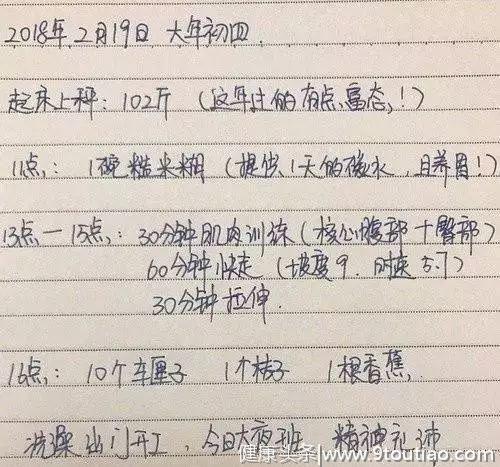 2018年2月19日 大年初四.
起床上秤: 102斤 (这年过的有点富态!)
11点: 1碗糙米糊 (提供1天的碳水, 且养胃!)
13点—15点: 30分钟肌肉训练(核心腹部+臀部)
60分钟快走 (坡度9. 时速5.7)
30分钟拉伸.
16点: 10个车厘子 1个桔子 1根香蕉.
洗澡出门开工, 今日大夜班 精神礼沛
健康头条/www.9toutiao.com